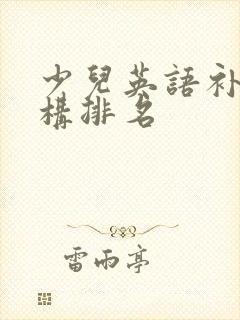 少兒英語补
構排名
雷雨亭